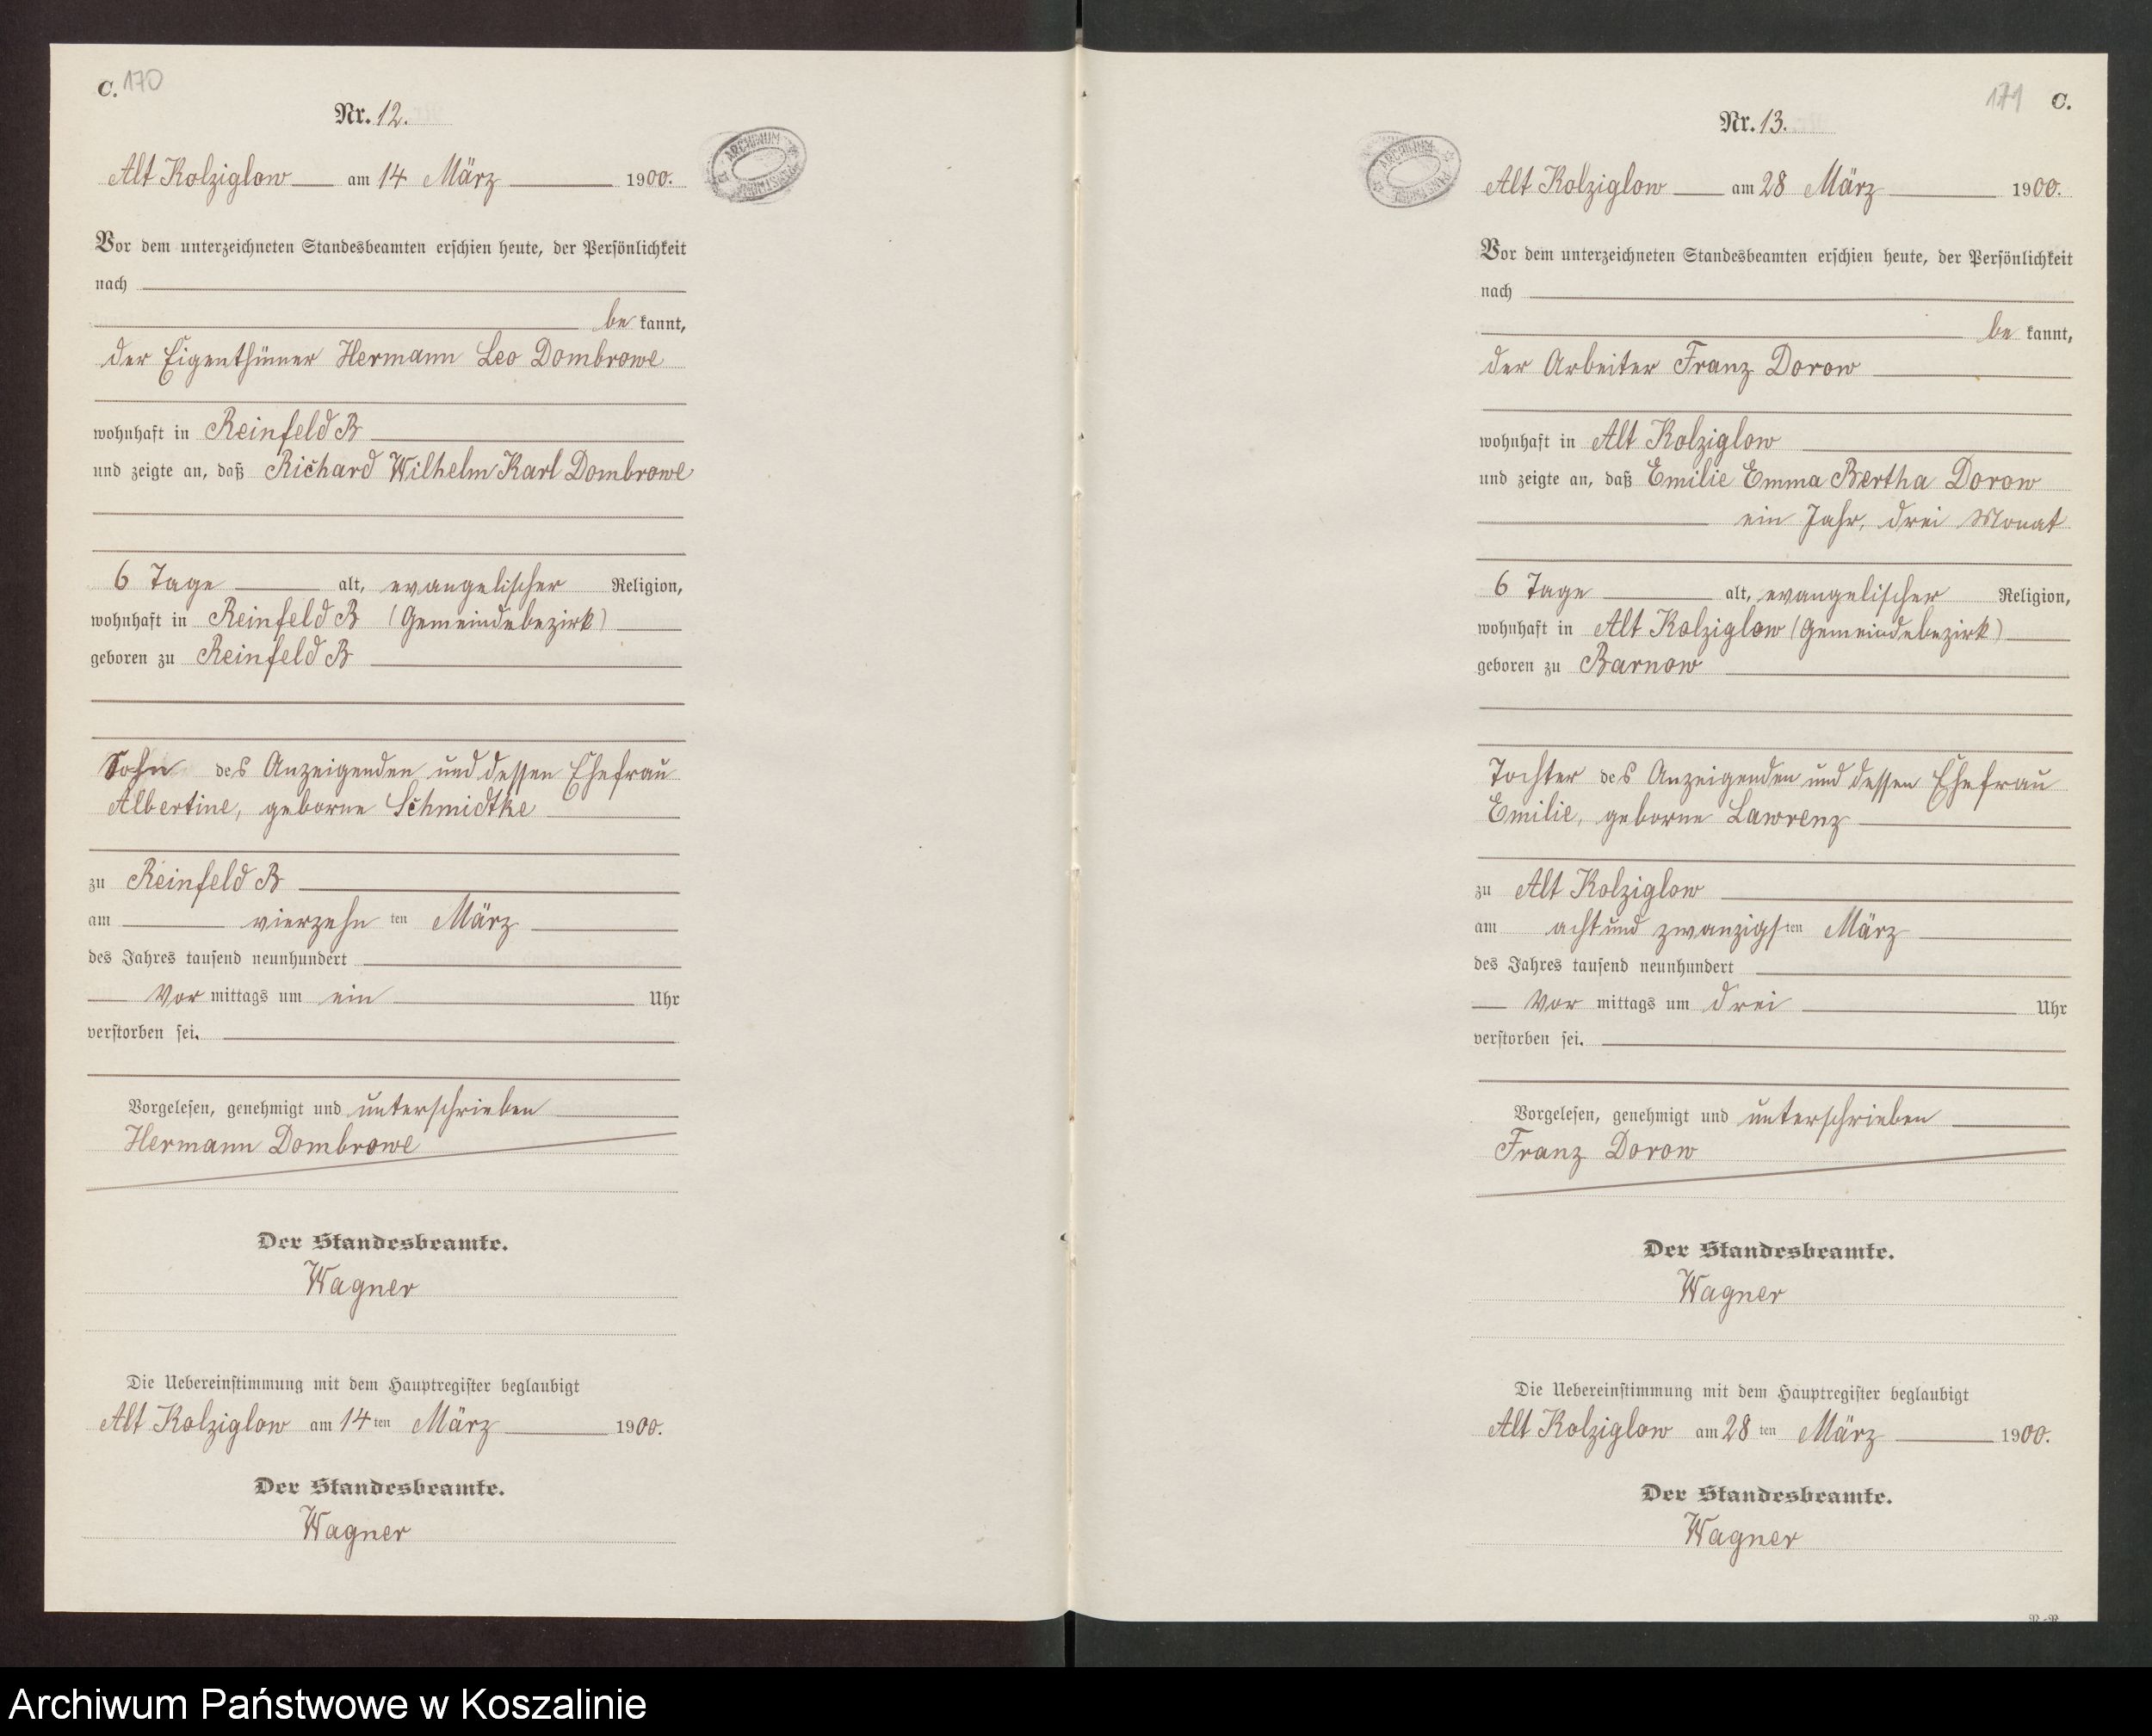 C. 170
Nr. 12.
Alt Kolziglow am 14 März 1900.
Vor dem unterzeichneten Standesbeamten erschien heute, der Persönlichkeit
nach
be kannt,
der Eigenthümer Hermann Leo Dombrowe
wohnhaft in Reinfeld B
und zeigte an, daß Richard Wilhelm Karl Dombrowe
6 Tage alt, evangelischer Religion,
wohnhaft in Reinfeld B (Gemeindebezirk)
geboren zu Reinfeld B
Sohn des Anzeigenden und dessen Ehefrau
Albertine, geborne Schmidtke
zu Reinfeld B
am vierzehn ten März
des Jahres tausend neunhundert
Vor mittags um ein Uhr
verstorben sei.
Vorgelesen, genehmigt und unterschrieben
Hermann Dombrowe
Der Standesbeamte.
Wagner
Die Uebereinstimmung mit dem Hauptregister beglaubigt
Alt Kolziglow am 14 ten März 1900.
Der Standesbeamte.
Wagner
ARCHIWUM
171 C.
Nr. 13.
Alt Kolziglow am 28 März 1900.
Vor dem unterzeichneten Standesbeamten erschien heute, der Persönlichkeit
nach
be kannt,
der Arbeiter Franz Dorow
wohnhaft in Alt Kolziglow
und zeigte an, daß Emilie Emma Bertha Dorow
ein Jahr, drei Monat
6 Tage alt, evangelischer Religion,
wohnhaft in Alt Kolziglow (Gemeindebezirk)
geboren zu Barnow
Tochter des Anzeigenden und dessen Ehefrau
Emilie, geborne Lawrenz
zu Alt Kolziglow
am acht und zwanzigsten März
des Jahres tausend neunhundert
Vor mittags um drei Uhr
verstorben sei.
Vorgelesen, genehmigt und unterschrieben
Franz Dorow
Der Standesbeamte.
Wagner
Die Uebereinstimmung mit dem Hauptregister beglaubigt
Alt Kolziglow am 28 ten März 1900.
Der Standesbeamte.
Wagner
ARCHIWUM
Archiwum Państwowe w Koszalinie